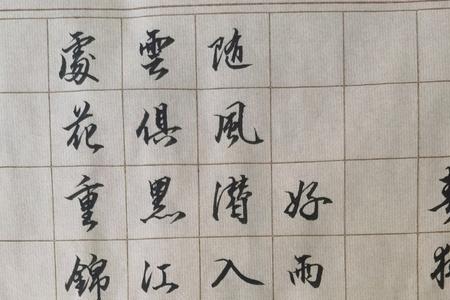 好雨
随風潜入
雲俱黑江
處花重錦